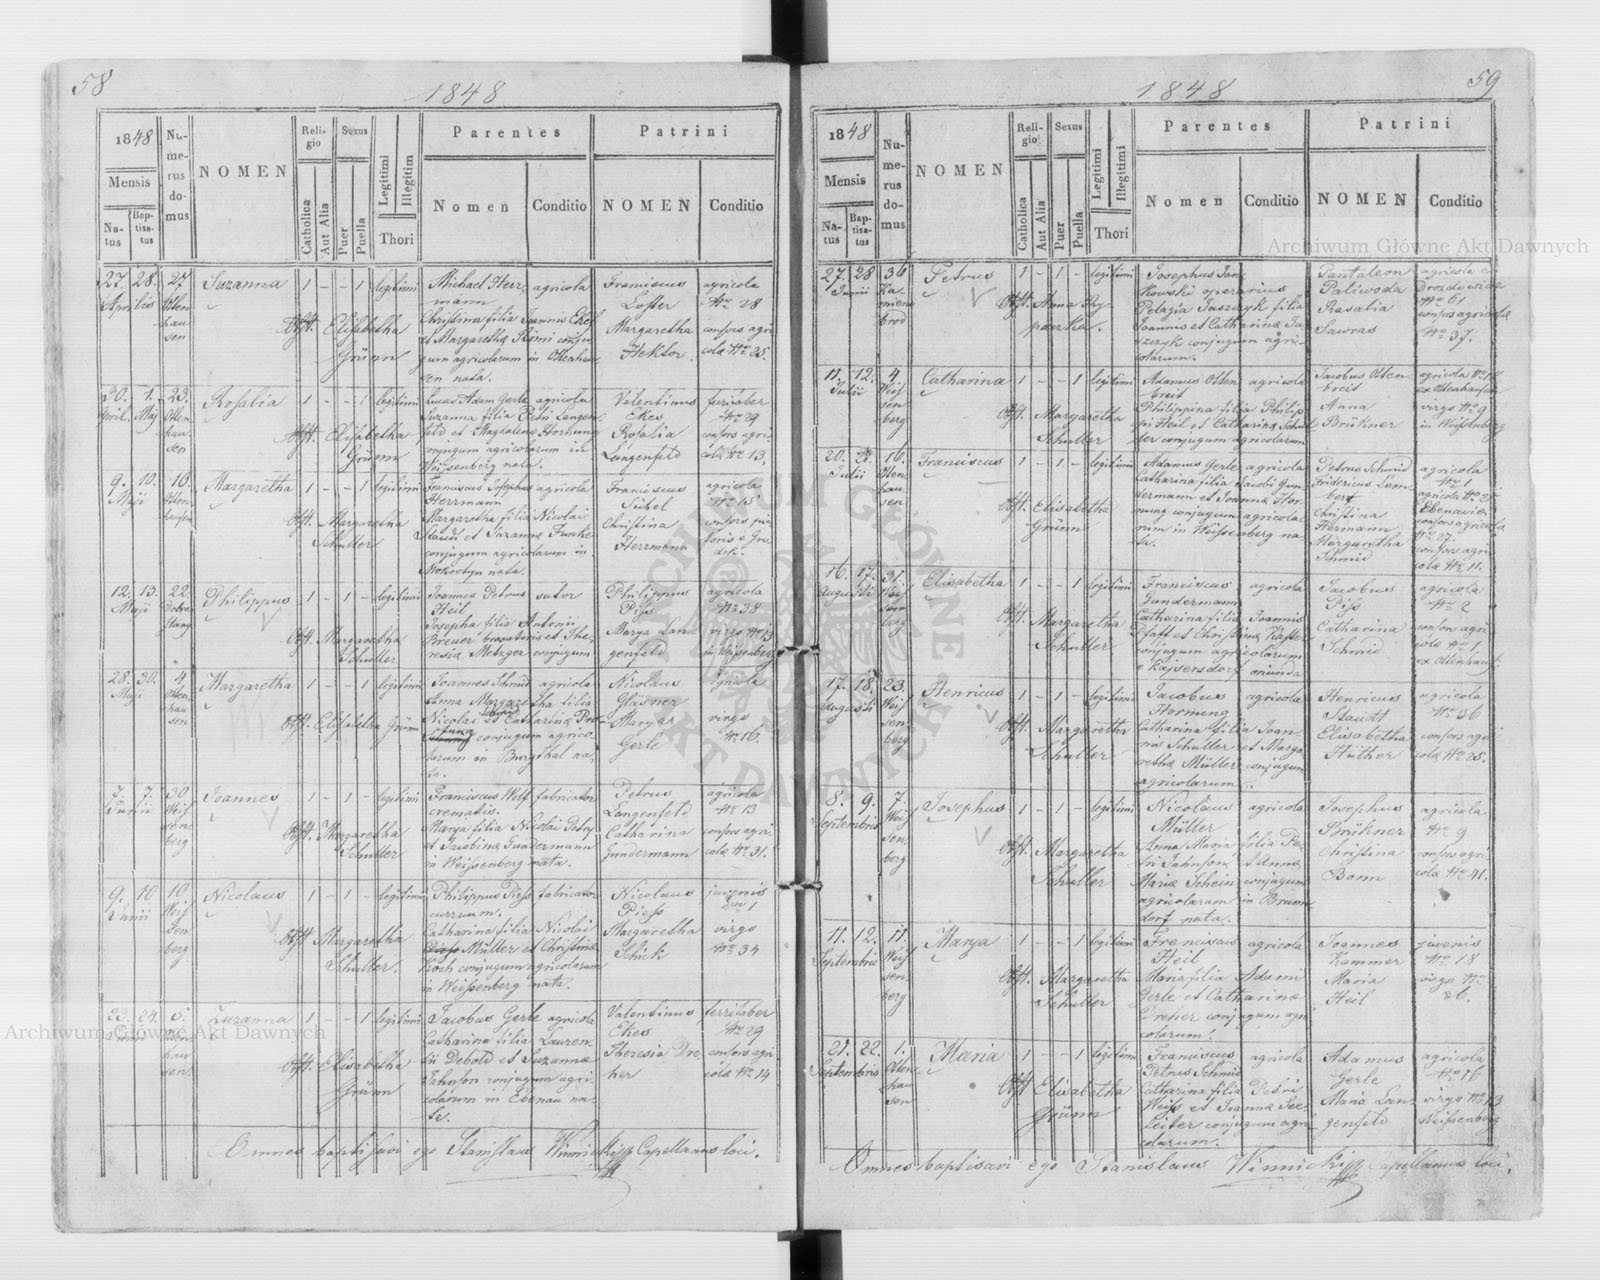 58
1848
1848
Mensis
Natus
Baptisatus
Numerus domus
NOMEN
Religio
Catholica
Aut Alia
Sexus
Puer
Puella
Legitimi
Illegitim
Thori
Parentes
Nomen
Conditio
Patrini
NOMEN
Conditio
27. 28. 27
Aprilis Ottenhausen
Suzanna
1 - - 1 legitimi
Obst. Elisabetha
Grünn
Michael Herrmann
agricola
Christina filia Joannis
et Margaretha conjugum agricolarum in Ottenhausen nata.
Franciscus
agricola
Nro 28
Margaretha
Hektor
consors agricolæ Nro 25.
30. 1. 23.
April. Maj Ottenhausen
Rosalia
1 - - 1 legitimi
Obst. Elisabetha
Grünn
Lucas Adam Gerle agricola
Suzanna filia Petri Langenfeld et Magdalena Hornung
conjugum agricolarum in
Weissenberg nata.
Valentinus
Ekes
Nro 29
Rosalia
Langenfeld
consors agricolæ Nro 13.
9. 10. 10.
Maji Ottenhausen
Margaretha
1 - - 1 legitimi
Obst. Margaretha
Schuller
Franciscus Josephus agricola
Herrmann
Margaretha filia Nicolai
Staudt et Suzanna Funke
conjugum agricolarum in
Mokrotyn nata.
Franciscus
agricola
Christina
Herrmann
12. 13. 22.
Maji
Philippus
1 - 1 - legitimi
Obst. Margaretha
Schuller
Joannes Petrus sutor
Heil
Josepha filia Antonii
Breuer et Theresiæ Metzger conjugum
Philippus
Piss
agricola
Nro 38
Marya Langenfeld
virgo Nro 13
in Weissenberg
28. 30. 4
Maji Ottenhausen
Margaretha
1 - - 1 legitimi
Obst. Elisabetha Grünn
Joannes Schmid agricola
Anna Margaretha filia
Nicolai et Catharinæ
conjugum agricolarum in Burgthal nata.
Nicolaus
Gläsner
agricola
Marya
Gerle
virgo
Nro 16.
7. 7. 30
Junii Weissenberg
Joannes
1 - 1 - legitimi
Obst. Margaretha
Schuller
Franciscus Wolf fabricator
crematis.
Marya filia Nicolai Petry
et Jacobina Gundermann
in Weissenberg nata.
Petrus
Langenfeld
agricola
Nro 13
Catharina
Gundermann
consors agricolæ Nro 31.
9. 10 10
Junii Weissenberg
Nicolaus
1 - 1 - legitimi
Obst. Margaretha
Schuller.
Philippus Piess fabricator
curruum.
Catharina filia Nicolai
Müller et Christinæ
Koch conjugum agricolarum
in Weissenberg nata.
Nicolaus
Piess
juvenis
Nro 1
Margaretha
Schick
virgo
Nro 34
23. 24. 5.
Junii Ottenhausen.
Zuzanna
1 - - 1 legitimi
Obst. Elisabetha
Grünn
Jacobus Gerle agricola
Catharina filia Laurentii Debold et Suzannæ
Jahnson conjugum agricolarum in Ebenau nata.
Valentinus
Ekes
ferrifaber
Nro 29
Theresia Dreher
consors agricolæ Nro 14
Omnes baptisavi ego Stanislaus Winnicki Capellanus loci.
59
1848
1848
Mensis
Natus
Baptisatus
Numerus domus
NOMEN
Religio
Catholica
Aut Alia
Sexus
Puer
Puella
Legitimi
Illegitimi
Thori
Parentes
Nomen
Conditio
Patrini
NOMEN
Conditio
27. 28 36
Junii Kamienobrod
Petrus
1 - 1 - legitimi
Obst. Anna
Josephus Jankowski operarius
Pelagia Jaszczyk filia
Joannis et Catharinæ
conjugum agricolarum.
Pantaleon
Paliwoda
agricola
Nro 61
Rosalia
Sawras
consors agricolæ
Nro 37.
11. 12. 4
Julii Weissenberg
Catharina
1 - - 1 legitimi
Obst. Margaretha
Schuller
Adamus Ottenbreit agricola
Philippina filia Philippi Heil et Catharinæ Schuller conjugum agricolarum
Jacobus Ottenbreit
agricola Nro 18
ex Ottenhausen
Anna
Brükner
virgo Nro 9
in Weissenberg
20. 21. 16.
Julii Ottenhausen
Franciscus
1 - 1 - legitimi
Obst. Elisabetha
Grünn
Adamus Gerle agricola
Catharina filia Gundermann et Joannæ Hornung conjugum agricolarum in Weissenberg nata.
Petrus Schmid
agricola
Nro 1
Fridericus Lembert
agricola Nro 25
Christina
Hermann
consors agricolæ
Nro 27.
Margaretha
Schmid
consors agricolæ Nro 11.
16. 17. 31.
Augusti Weissenberg
Elisabetha
1 - - 1 legitimi
Obst. Margaretha
Schuller
Franciscus agricola
Gundermann
Catharina filia Joannis
Pfaff et Christinæ
conjugum agricolarum
e Kaysersdorf oriunda
Jacobus
Piss
agricola
Nro 2
Catharina
Schmid
consors agricolæ Nro 1,
ex Ottenhausen
17. 18. 23.
Augusti Weissenberg
Henricus
1 - 1 - legitimi
Obst. Margaretha
Schuller
Jacobus agricola
Hornung
Catharina filia Joannis Schuller et Margaretha Müller conjugum
agricolarum.
Henricus
Staudt
agricola
Nro 36
Elisabetha
Huther
consors agricolæ Nro 25.
8. 9. 7.
Septembris Weissenberg
Josephus
1 - 1 - legitimi
Obst. Margaretha
Schuller
Nicolaus agricola
Müller
Anna Maria filia Petri Jahnson et Annæ
Mariæ Schein conjugum
agricolarum in Brundorf nata.
Josephus
Brükner
agricola
Nro 9
Christina
Bonn
consors agricola Nro 41.
11. 12. 11
Septembris Weissenberg
Marya
1 - - 1 legitimi
Obst. Margaretha
Schuller
Franciscus agricola
Heil
Maria filia Adami
Gerle et Catharinæ
Dreher conjugum agricolarum.
Joannes
Kammer
juvenis
Nro 18
Maria
Heil
virgo Nro
26.
21. 22. 1.
Septembris Ottenhausen
Maria
1 - - 1 legitimi
Obst. Elisabetha
Grünn
Franciscus agricola
Petrus Schmid
Catharina filia Petri
Weiss et Joannæ Seeleiter conjugum agricolarum.
Adamus
Gerle
agricola
Nro 16
Maria Langenfeld
virgo Nro 13
Weissenberg
Omnes baptisavi ego Stanislaus Winnicki Capellanus loci.
Archiwum Główne Akt Dawnych
Archiwum Główne Akt Dawnych
ARCHIWUM GŁÓWNE AKT DAWNYCH